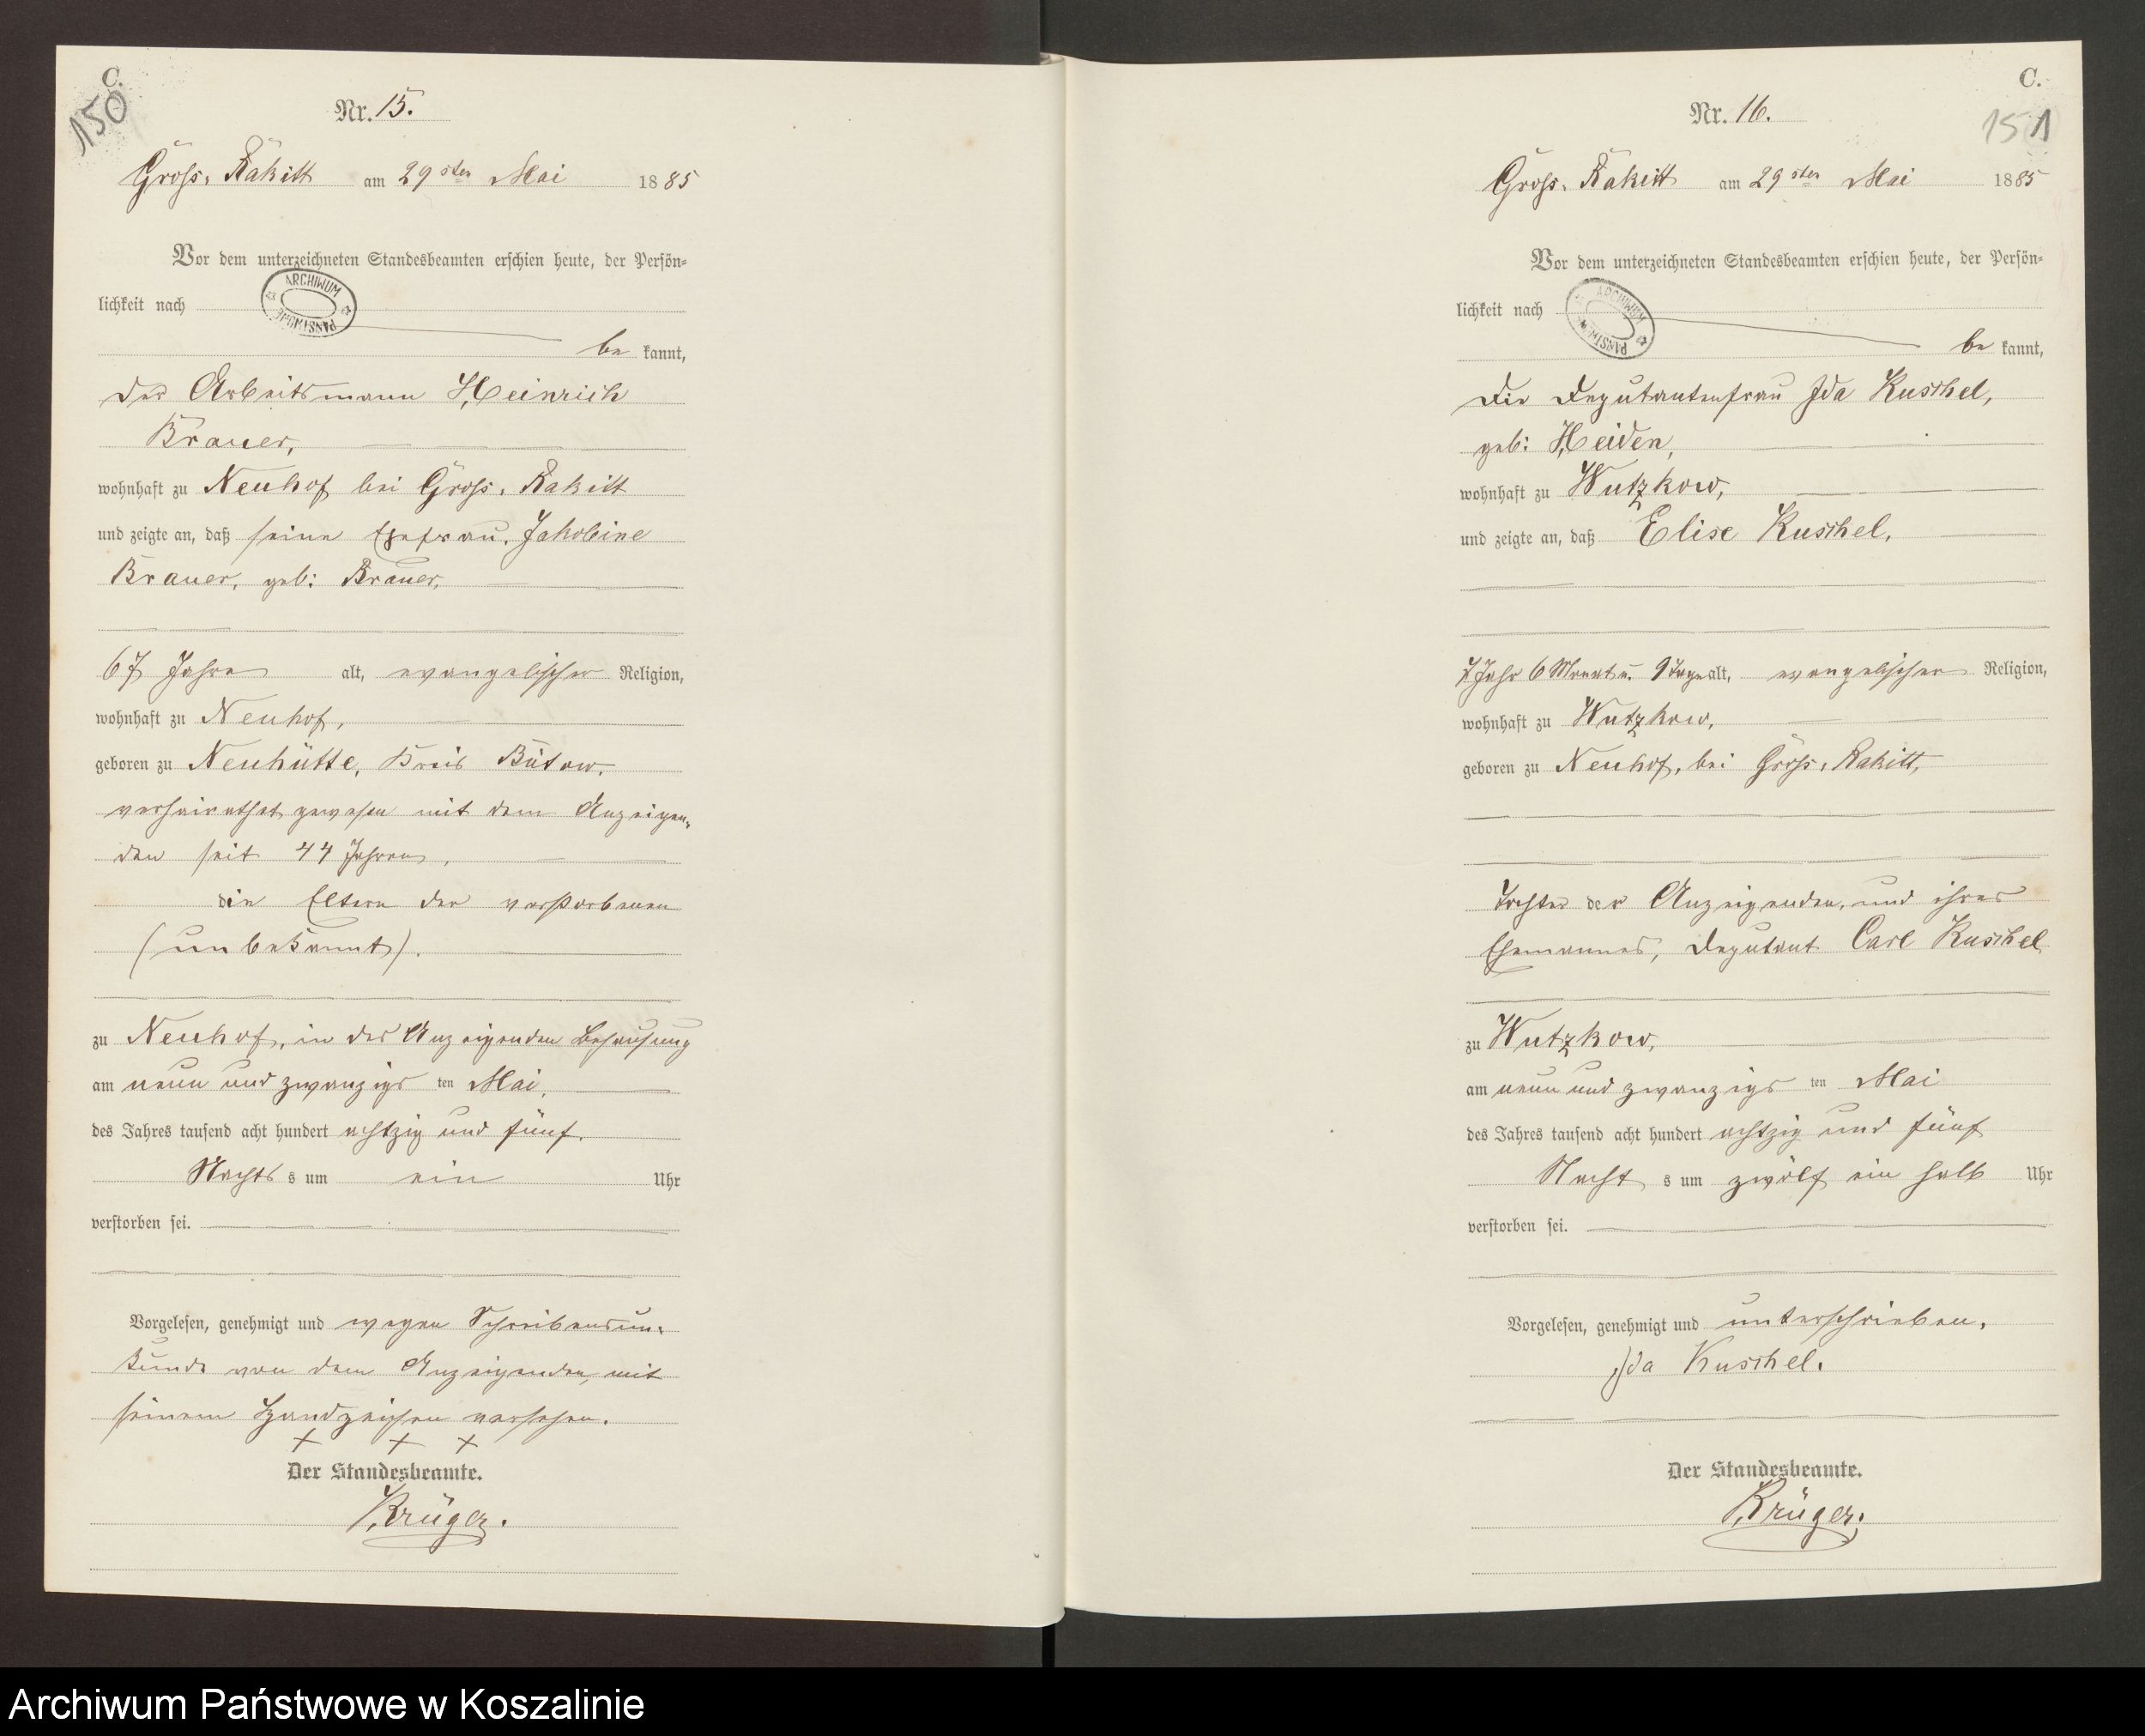 C.
150
Nr. 15.
Gross. Rakitt am 29sten Mai 1885
Vor dem unterzeichneten Standesbeamten erschien heute, der Persön=
lichkeit nach
ARCHIWUM PAŃSTWOWE
be kannt,
der Arbeitsmann Heinrich
Brauer,
wohnhaft zu Neuhof bei Gross. Rakitt
und zeigte an, daß seine Ehefrau, Jakobine
Brauer, geb: Brauer,
67 Jahre alt, evangelischer Religion,
wohnhaft zu Neuhof,
geboren zu Neuhütte, Kreis Bütow,
verheirathet gewesen mit dem Anzeigen=
den seit 44 Jahren,
die Eltern der verstorbenen
(unbekannt).
zu Neuhof, in des Anzeigenden Behausung
am neun und zwanzigs ten Mai,
des Jahres tausend acht hundert achtzig und fünf.
Nachts s um ein Uhr
verstorben sei.
Vorgelesen, genehmigt und wegen Schreibensun=
kunde von dem Anzeigenden, mit
seinem Handzeichen versehen.
+ + +
Der Standesbeamte.
Krüger.
C.
151
Nr. 16.
Gross. Rakitt am 29sten Mai 1885
Vor dem unterzeichneten Standesbeamten erschien heute, der Persön=
lichkeit nach
ARCHIWUM PAŃSTWOWE
be kannt,
Die Deputantenfrau Ida Kuschel,
geb: Heiden,
wohnhaft zu Wutzkow,
und zeigte an, daß Elise Kuschel,
7 Jahr 6 Monat u. 9 Tage alt, evangelischer Religion,
wohnhaft zu Wutzkow,
geboren zu Neuhof, bei Gross. Rakitt,
Tochter der Anzeigenden, und ihres
Ehemannes, Deputant Carl Kuschel
zu Wutzkow,
am neun und zwanzigs ten Mai
des Jahres tausend acht hundert achtzig und fünf
Nacht s um zwölf ein halb Uhr
verstorben sei.
Vorgelesen, genehmigt und unterschrieben.
Ida Kuschel.
Der Standesbeamte.
Krüger.
Archiwum Państwowe w Koszalinie